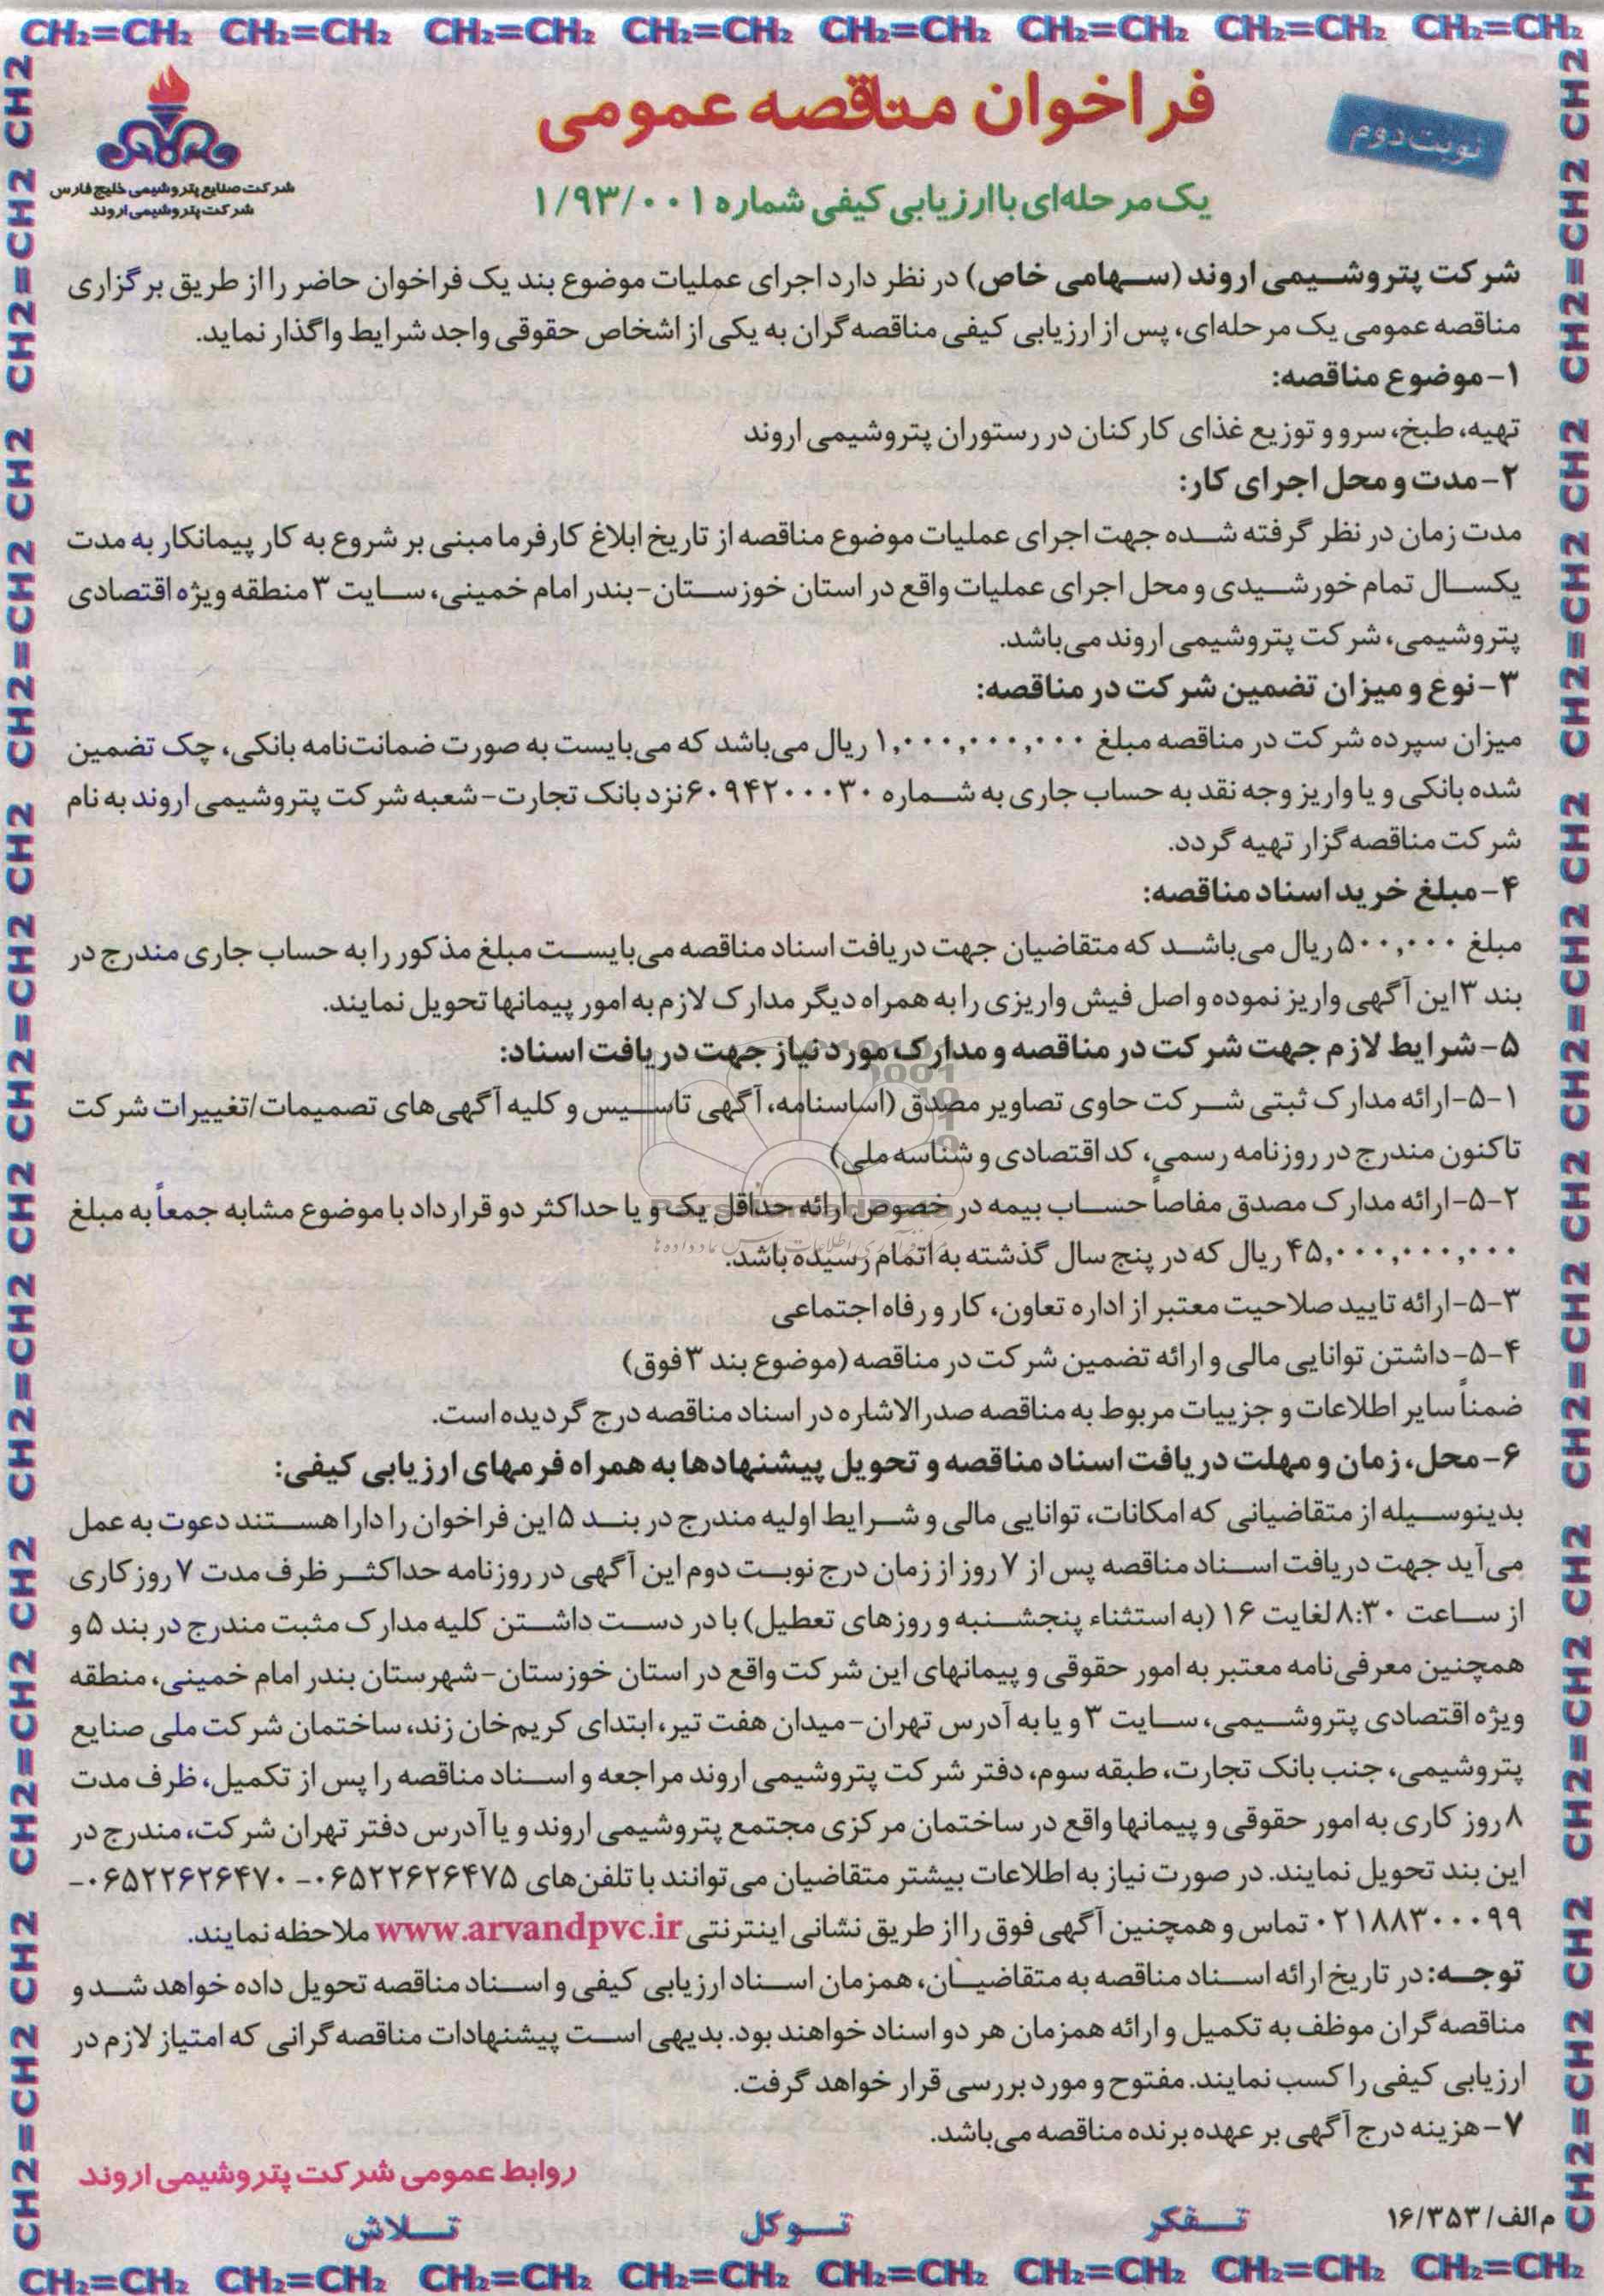 CH₂=CH₂ CH₂=CH₂ CH₂=CH₂ CH₂=CH₂ CH₂=CH₂ CH₂=CH₂ CH₂=CH₂ CH₂=CH₂
نوبت دوم
فراخوان مناقصه عمومی
یک مرحله‌ای با ارزیابی کیفی شماره ۱/۹۳/۰۰۱
شرکت صنایع پتروشیمی خلیج فارس
شرکت پتروشیمی اروند
شرکت پتروشیمی اروند (سهامی خاص) در نظر دارد اجرای عملیات موضوع بند یک فراخوان حاضر را از طریق برگزاری
مناقصه عمومی یک مرحله‌ای، پس از ارزیابی کیفی مناقصه گران به یکی از اشخاص حقوقی واجد شرایط واگذار نماید.
۱- موضوع مناقصه:
تهیه، طبخ، سرو و توزیع غذای کارکنان در رستوران پتروشیمی اروند
۲- مدت و محل اجرای کار:
مدت زمان در نظر گرفته شده جهت اجرای عملیات موضوع مناقصه از تاریخ ابلاغ کارفرما مبنی بر شروع به کار پیمانکار به مدت
یکسال تمام خورشیدی و محل اجرای عملیات واقع در استان خوزستان- بندر امام خمینی، سایت ۳ منطقه ویژه اقتصادی
پتروشیمی، شرکت پتروشیمی اروند می‌باشد.
۳- نوع و میزان تضمین شرکت در مناقصه:
میزان سپرده شرکت در مناقصه مبلغ ۱,۰۰۰,۰۰۰,۰۰۰ ریال می‌باشد که می‌بایست به صورت ضمانت‌نامه بانکی، چک تضمین
شده بانکی و یا واریز وجه نقد به حساب جاری به شماره ۶۰۹۴۲۰۰۰۳۰ نزد بانک تجارت- شعبه شرکت پتروشیمی اروند به نام
شرکت مناقصه گزار تهیه گردد.
۴- مبلغ خرید اسناد مناقصه:
مبلغ ۵۰۰,۰۰۰ ریال می‌باشد که متقاضیان جهت دریافت اسناد مناقصه می‌بایست مبلغ مذکور را به حساب جاری مندرج در
بند ۳ این آگهی واریز نموده و اصل فیش واریزی را به همراه دیگر مدارک لازم به امور پیمانها تحویل نمایند.
۵- شرایط لازم جهت شرکت در مناقصه و مدارک مورد نیاز جهت دریافت اسناد:
۵-۱- ارائه مدارک ثبتی شرکت حاوی تصاویر مصدق (اساسنامه، آگهی تاسیس و کلیه آگهی‌های تصمیمات/تغییرات شرکت
تاکنون مندرج در روزنامه رسمی، کد اقتصادی و شناسه ملی)
۵-۲- ارائه مدارک مصدق مفاصاً حساب بیمه در خصوص ارائه حداقل یک و یا حداکثر دو قرارداد با موضوع مشابه جمعاً به مبلغ
۴۵,۰۰۰,۰۰۰,۰۰۰ ریال که در پنج سال گذشته به اتمام رسیده باشد.
۵-۳- ارائه تایید صلاحیت معتبر از اداره تعاون، کار و رفاه اجتماعی
۵-۴- داشتن توانایی مالی و ارائه تضمین شرکت در مناقصه (موضوع بند ۳ فوق)
ضمناً سایر اطلاعات و جزییات مربوط به مناقصه صدرالاشاره در اسناد مناقصه درج گردیده است.
۶- محل، زمان و مهلت دریافت اسناد مناقصه و تحویل پیشنهادها به همراه فرمهای ارزیابی کیفی:
بدینوسیله از متقاضیانی که امکانات، توانایی مالی و شرایط اولیه مندرج در بند ۵ این فراخوان را دارا هستند دعوت به عمل
می‌آید جهت دریافت اسناد مناقصه پس از ۷ روز از زمان درج نوبت دوم این آگهی در روزنامه حداکثر ظرف مدت ۷ روز کاری
از ساعت ۸:۳۰ لغایت ۱۶ (به استثناء پنجشنبه و روزهای تعطیل) با در دست داشتن کلیه مدارک مثبت مندرج در بند ۵ و
همچنین معرفی‌نامه معتبر به امور حقوقی و پیمانهای این شرکت واقع در استان خوزستان- شهرستان بندر امام خمینی، منطقه
ویژه اقتصادی پتروشیمی، سایت ۳ و یا به آدرس تهران- میدان هفت تیر، ابتدای کریم‌خان زند، ساختمان شرکت ملی صنایع
پتروشیمی، جنب بانک تجارت، طبقه سوم، دفتر شرکت پتروشیمی اروند مراجعه و اسناد مناقصه را پس از تکمیل، ظرف مدت
۸ روز کاری به امور حقوقی و پیمانها واقع در ساختمان مرکزی مجتمع پتروشیمی اروند و یا آدرس دفتر تهران شرکت، مندرج در
این بند تحویل نمایند. در صورت نیاز به اطلاعات بیشتر متقاضیان می‌توانند با تلفن‌های ۰۶۵۲۲۶۲۶۴۷۵- ۰۶۵۲۲۶۲۶۴۷۰-
۰۲۱۸۸۳۰۰۰۹۹ تماس و همچنین آگهی فوق را از طریق نشانی اینترنتی www.arvandpvc.ir ملاحظه نمایند.
توجه: در تاریخ ارائه اسناد مناقصه به متقاضیان، همزمان اسناد ارزیابی کیفی و اسناد مناقصه تحویل داده خواهد شد و
مناقصه گران موظف به تکمیل و ارائه همزمان هر دو اسناد خواهند بود. بدیهی است پیشنهادات مناقصه گرانی که امتیاز لازم در
ارزیابی کیفی را کسب نمایند. مفتوح و مورد بررسی قرار خواهد گرفت.
۷- هزینه درج آگهی بر عهده برنده مناقصه می‌باشد.
روابط عمومی شرکت پتروشیمی اروند
م الف/ ۱۶/۳۵۳
تفکر توکل تلاش
CH₂=CH₂ CH₂=CH₂ CH₂=CH₂ CH₂=CH₂ CH₂=CH₂ CH₂=CH₂ CH₂=CH₂ CH₂=CH₂